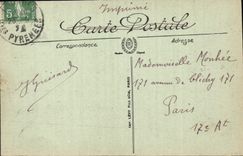 Imprimé
5
Carte Postale
Correspondance
Adresse
PYRENEES
Mademoiselle Monhée
171 avenue de Clichy 171
Paris
17e At